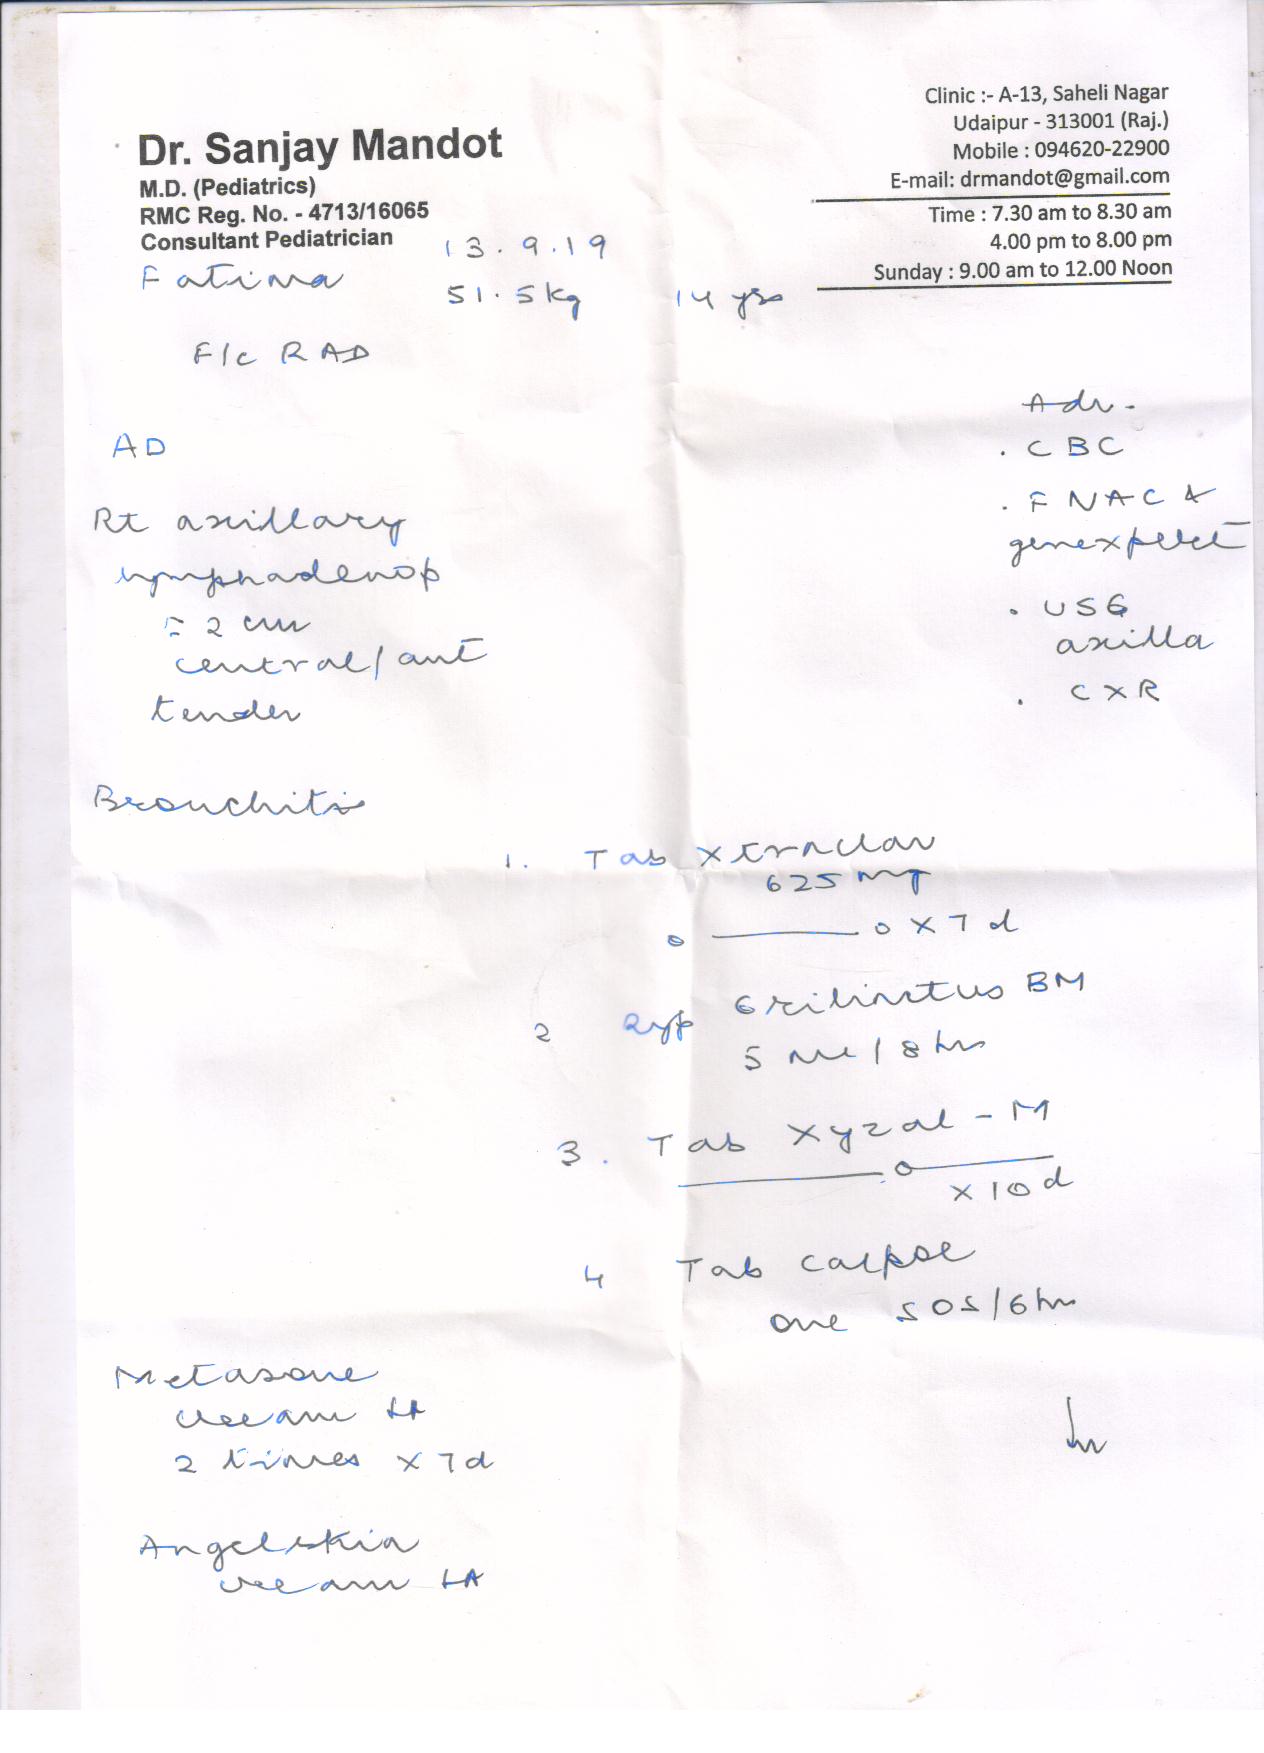 Dr. Sanjay Mandot
M.D. (Pediatrics)
RMC Reg. No. - 4713/16065
Consultant Pediatrician
Clinic :- A-13, Saheli Nagar
Udaipur - 313001 (Raj.)
Mobile : 094620-22900
E-mail: drmandot@gmail.com
Time : 7.30 am to 8.30 am
4.00 pm to 8.00 pm
Sunday : 9.00 am to 12.00 Noon
13.9.19
Fatima
51.5kg 14 yrs
F/c RAD
AD
Rt axillary
lymphadenop
2 cm
central/ant
tender
Bronchitis
Adv-
. CBC
. FNAC &
genexpert
. USG
axilla
. CXR
1. Tab Xtraclav
625 mg
0 ——— 0 X 7 d
2 Syp Grilinctus BM
5 ml / 8 hrs
3. Tab Xyzal - M
——— 0 ———
X 10 d
4 Tab calpol
one SOS/6 hrs
Metasone
cream LA
2 times X 7d
cream LA